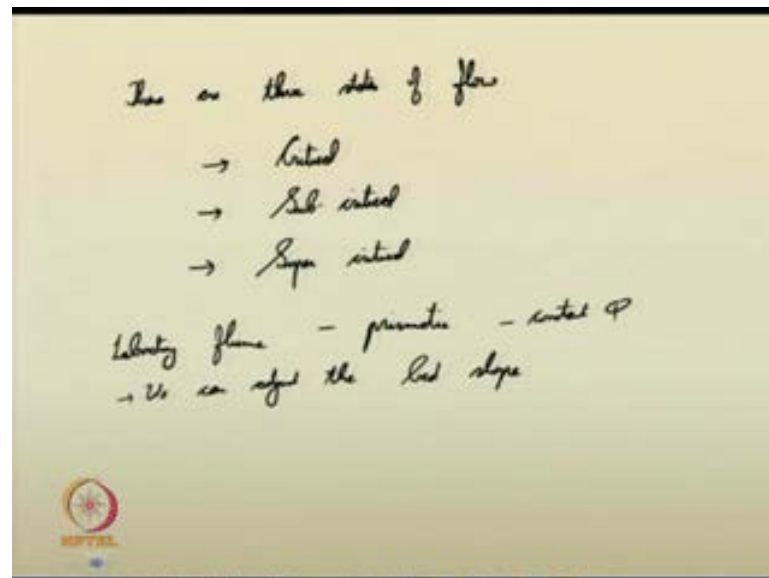 There are three state of flow
→ Critical
→ Sub critical
→ Super critical
Laboratory flume - prismatic - constant Q
→ We can adjust the bed slope
NPTEL